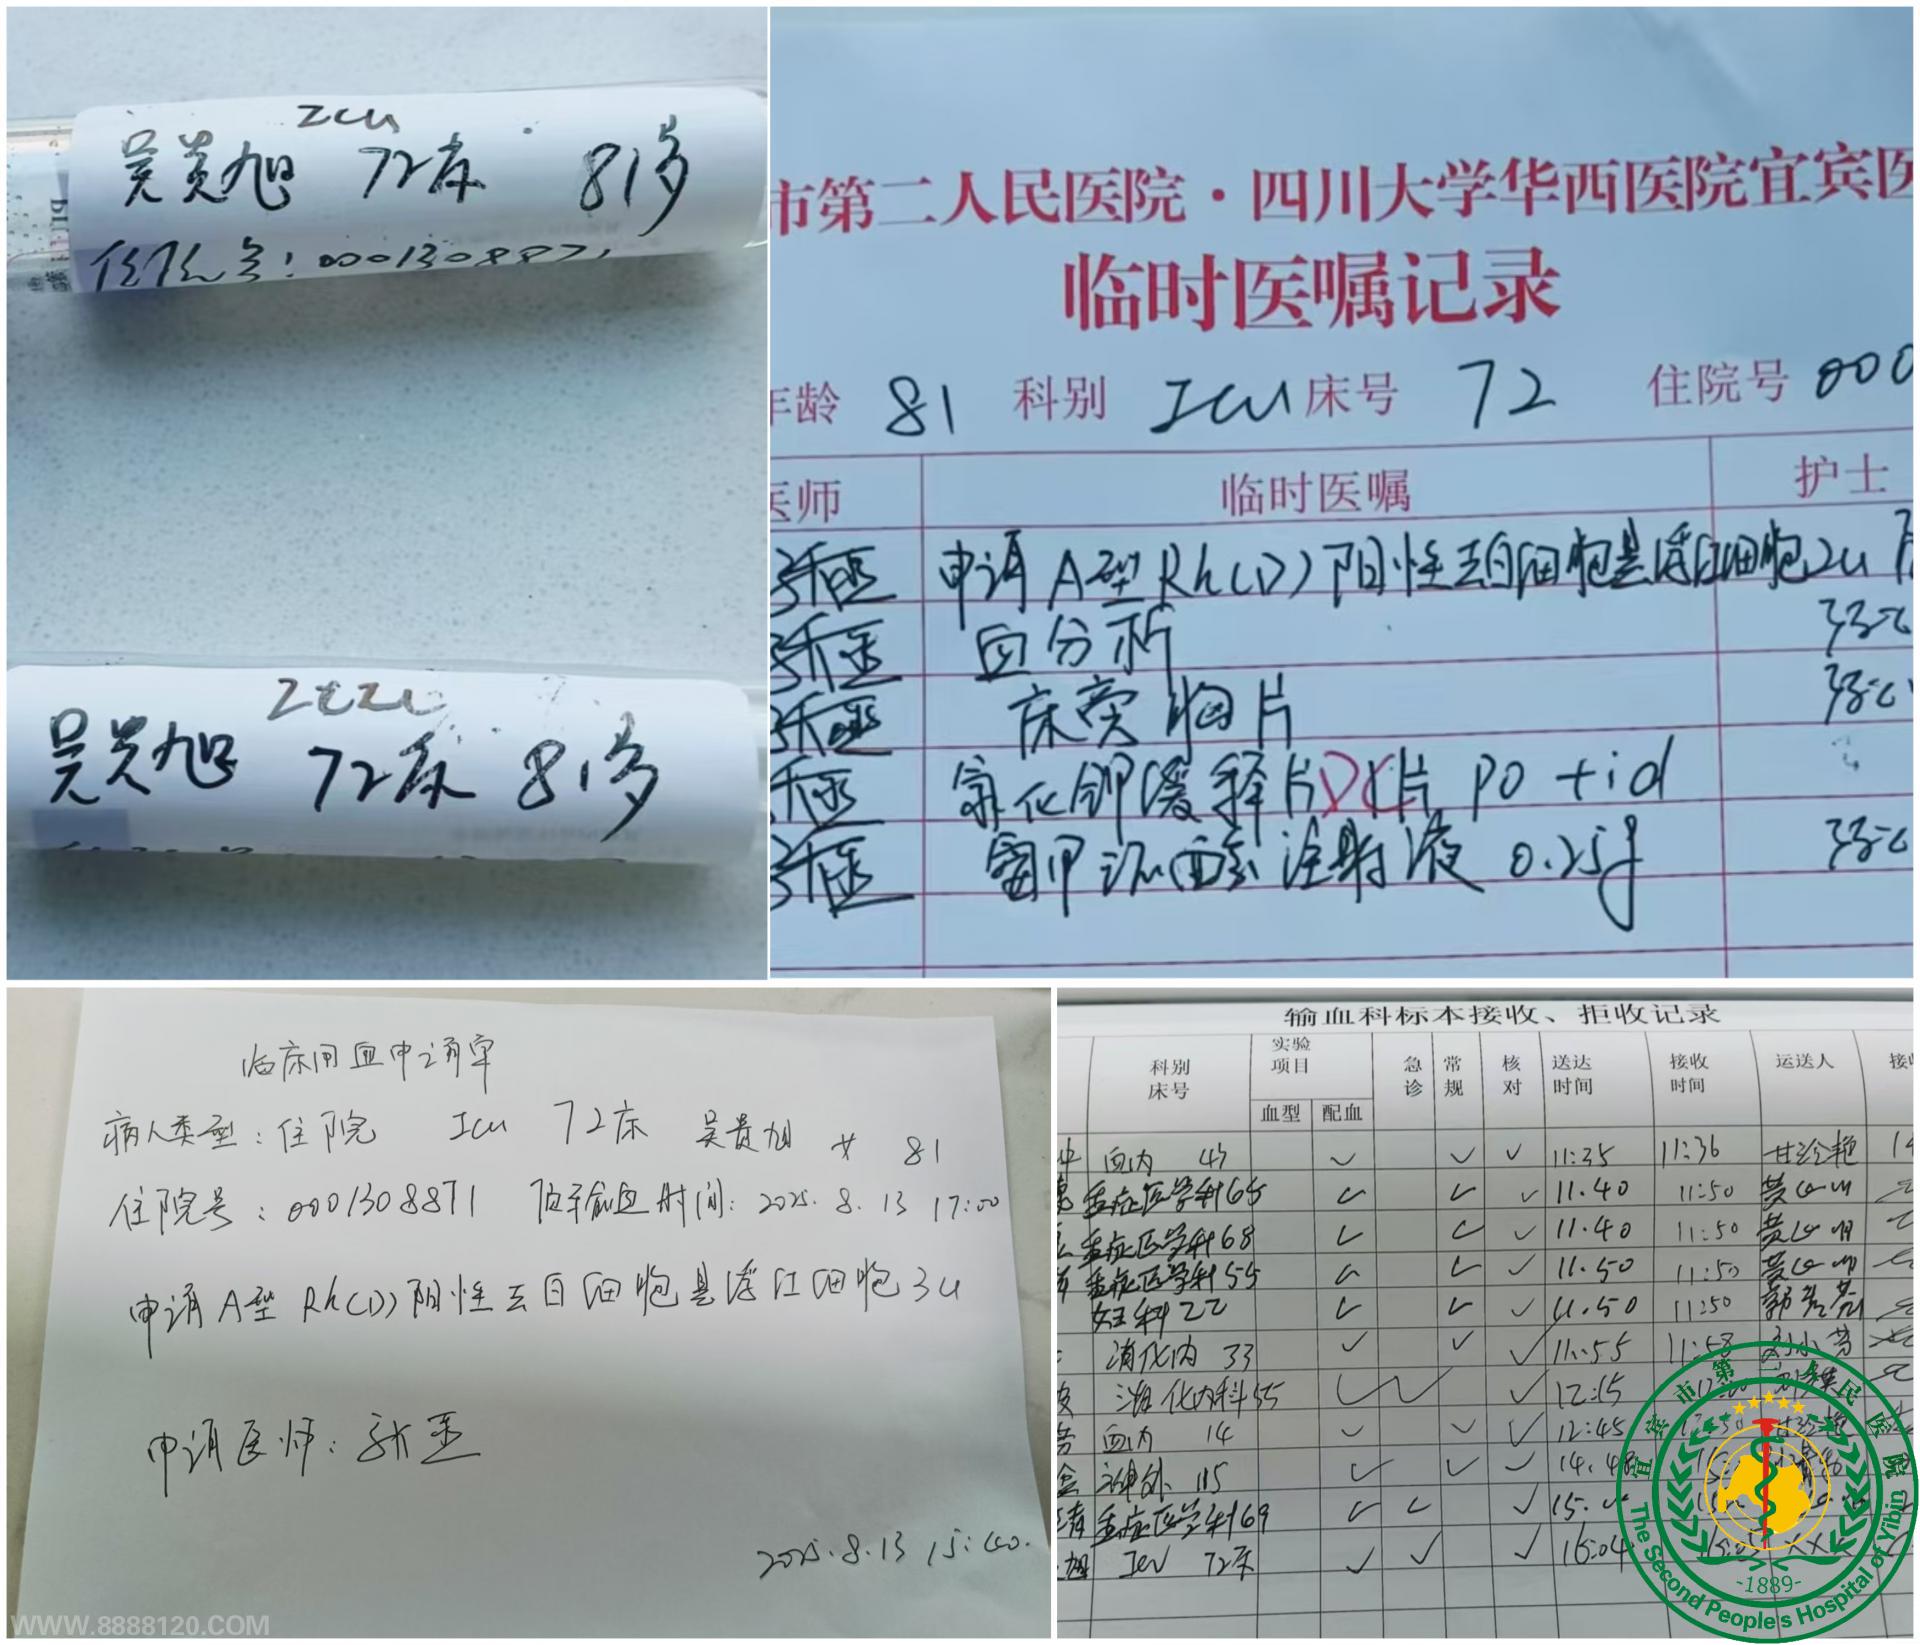 ICU
吴贵旭 72床 81岁
住院号：0001308871
ICU
吴贵旭 72床 81岁
市第二人民医院·四川大学华西医院宜宾医
临时医嘱记录
年龄 81 科别 ICU 床号 72 住院号 000
医师 临时医嘱 护士
申请A型Rh(D)阳性去白细胞悬浮红细胞2u
血分析
床旁胸片
氯化钾缓释片 片 po tid
注射液 0.25g
临床用血申请单
病人类型：住院 ICU 72床 吴贵旭 女 81
住院号：0001308871 预期输血时间：2025.8.13 17:00
申请A型Rh(D)阳性去白细胞悬浮红细胞3u
申请医师：
2025.8.13 15:40.
输血科标本接收、拒收记录
科别床号 实验项目 血型 配血 急诊 常规 核对 送达时间 接收时间 运送人
血内 43 ✓ ✓ ✓ 11:35 11:36
重症医学科65 ✓ ✓ ✓ 11.40 11:50
重症医学科68 ✓ ✓ ✓ 11.40 11:50
重症医学科55 ✓ ✓ ✓ 11.50 11:50
妇科22 ✓ ✓ ✓ 11.50 11:50
消化内 33 ✓ ✓ ✓ 11:55 11:58
消化内科55 ✓ ✓ ✓ 12:15
血内 14 ✓ ✓ ✓ 12:45
神外 115 ✓ ✓ ✓ 14.48
重症医学科69 ✓ ✓ ✓
旭 ICU 72床 ✓ ✓ ✓ 16:04
宜宾市第二人民医院
The Second People's Hospital of Yibin
-1889-
WWW.8888120.COM